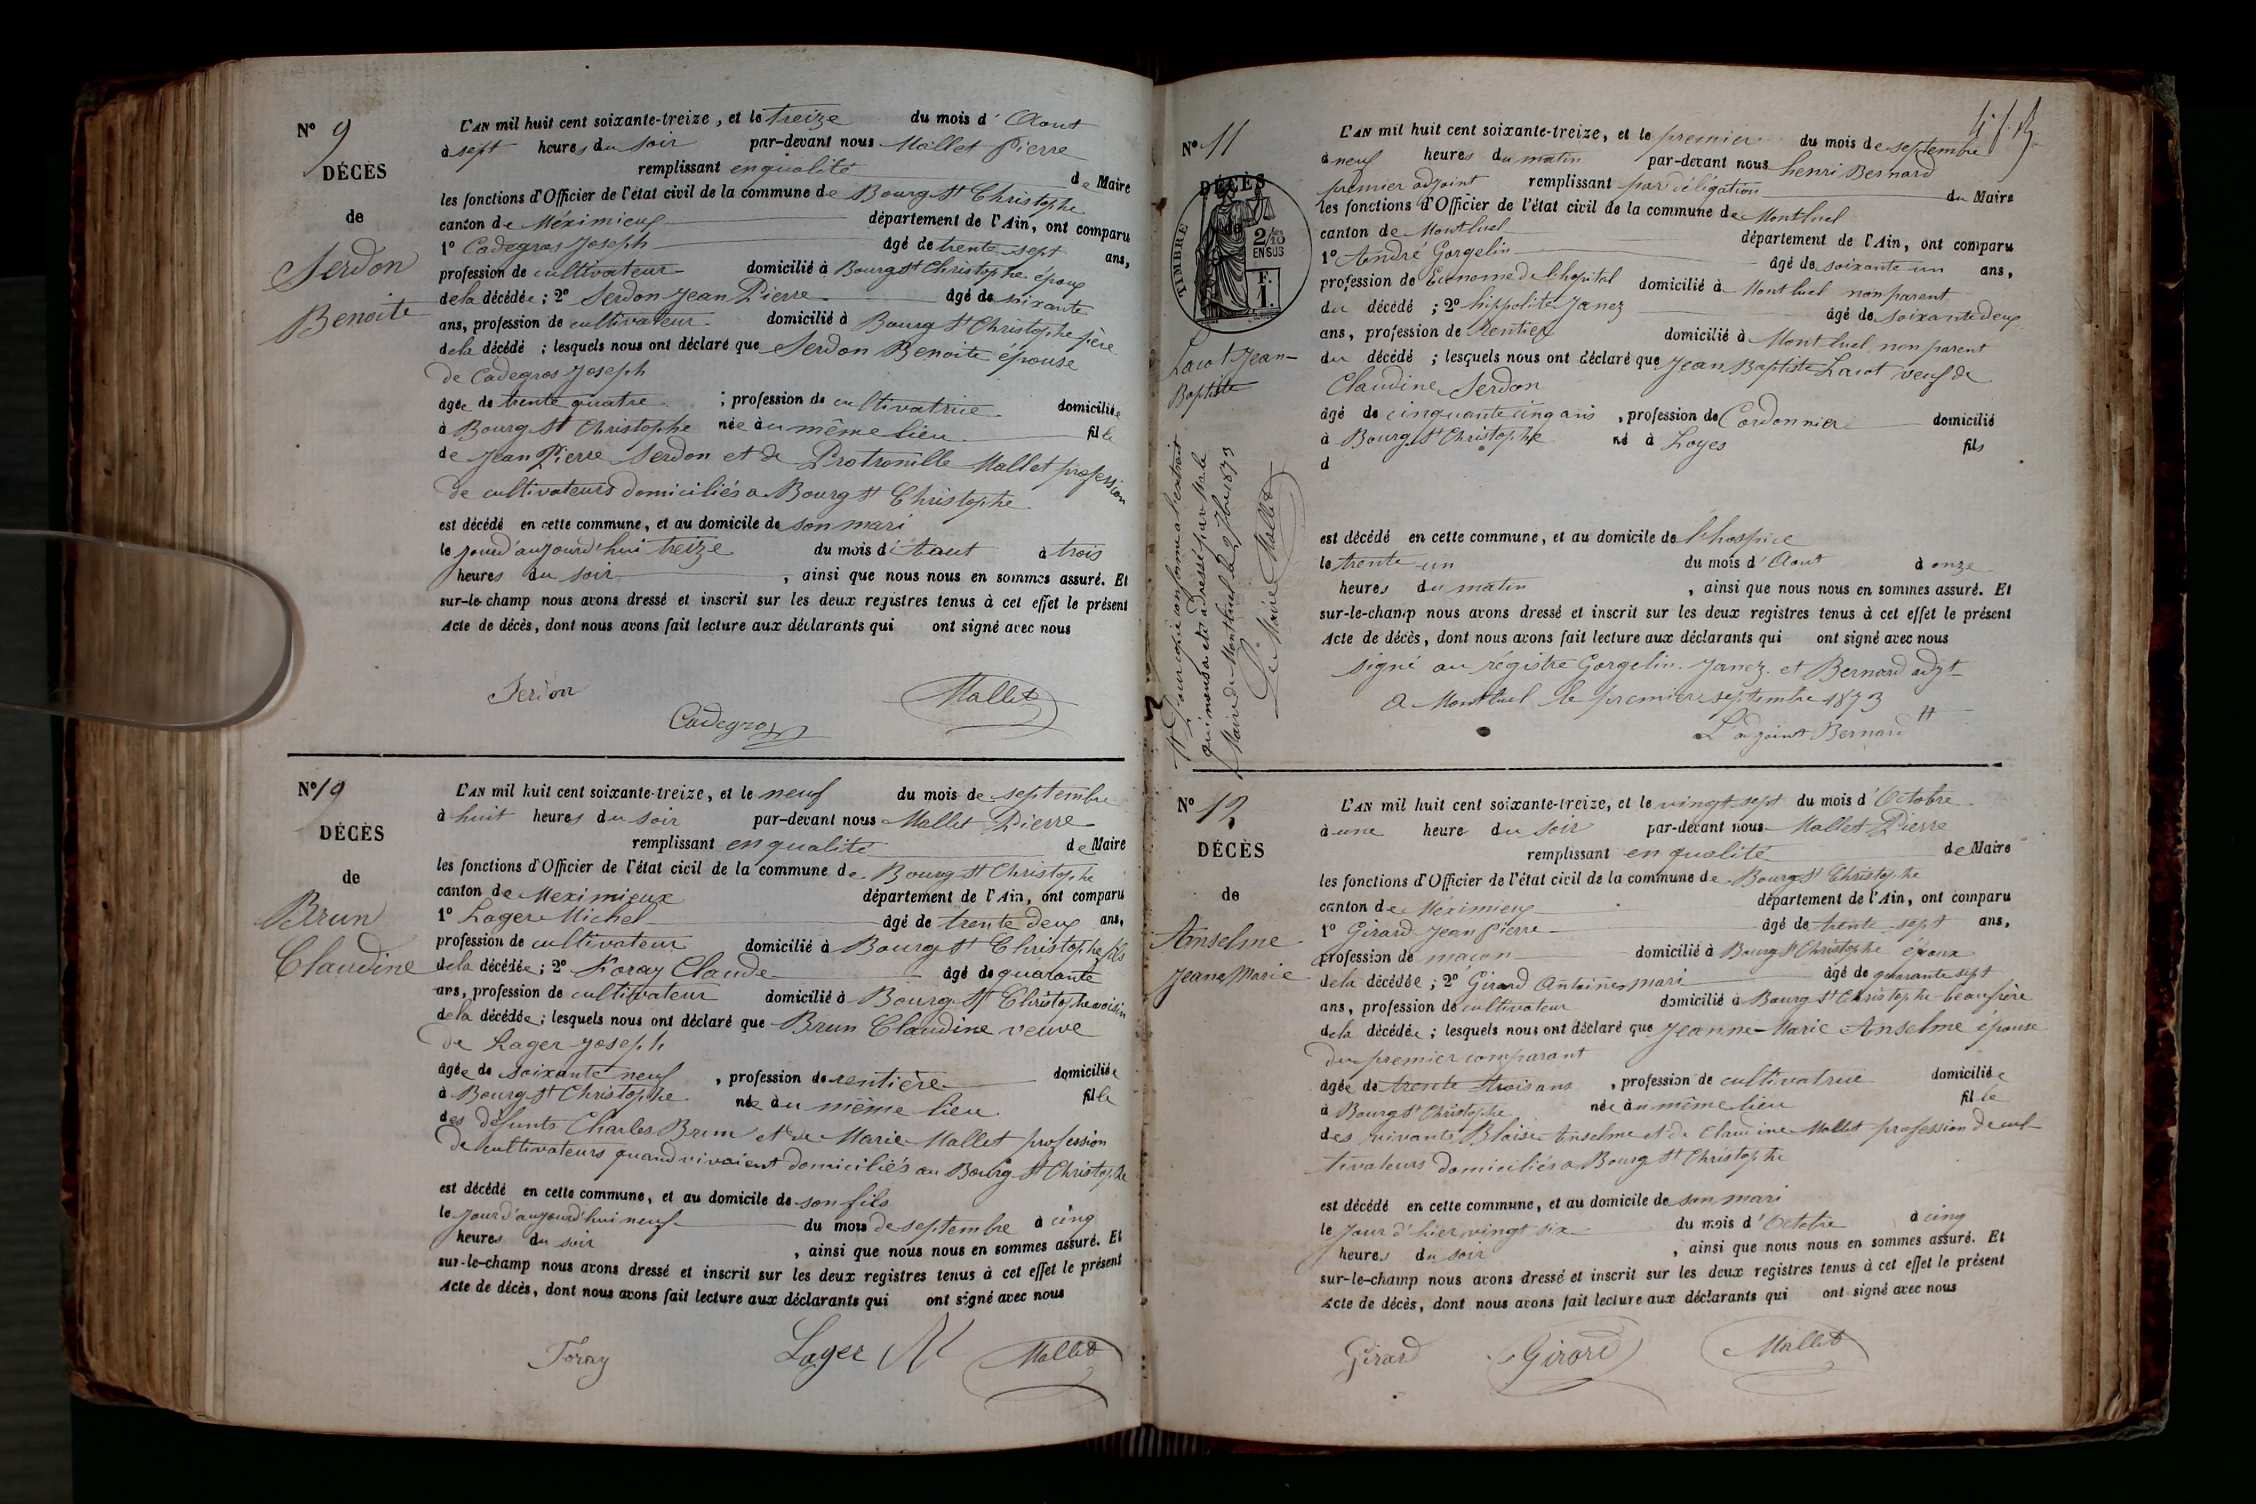 N° 9
DÉCÈS
de
Serdon
Benoite
L'AN mil huit cent soixante-treize, et le treize du mois d' Aout
à sept heures du soir par-devant nous Mallet Pierre
remplissant en qualité de Maire
les fonctions d'Officier de l'état civil de la commune de Bourg St Christophe
canton de Méximieux département de l'Ain, ont comparu
1° Cadegros Joseph âgé de trente sept ans,
profession de cultivateur domicilié à Bourg St Christophe époux
de la décédée ; 2° Serdon Jean Pierre âgé de soixante
ans, profession de cultivateur domicilié à Bourg St Christophe père
de la décédé ; lesquels nous ont déclaré que Serdon Benoite épouse
de Cadegros Joseph
âgée de trente quatre ; profession de cultivatrice domiciliée
à Bourg St Christophe née au même lieu fille
de Jean Pierre Serdon et de Protronille Mallet profession
de cultivateurs domiciliés a Bourg St Christophe
est décédé en cette commune, et au domicile de son mari
le jour d'aujourd'hui treize du mois d' Aout à trois
heures du soir, ainsi que nous nous en sommes assuré. Et
sur-le-champ nous avons dressé et inscrit sur les deux registres tenus à cet effet le présent
Acte de décès, dont nous avons fait lecture aux déclarants qui ont signé avec nous
Serdon
Cadegros
Mallet
N° 19
DÉCÈS
de
Brun
Claudine
L'AN mil huit cent soixante-treize, et le neuf du mois de septembre
à huit heures du soir par-devant nous Mallet Pierre
remplissant en qualité de Maire
les fonctions d'Officier de l'état civil de la commune de Bourg St Christophe
canton de Meximieux département de l'Ain, ont comparu
1° Lager Michel âgé de trente deux ans,
profession de cultivateur domicilié à Bourg St Christophe fils
de la décédée ; 2° Foray Claude âgé de quarante
ans, profession de cultivateur domicilié à Bourg St Christophe voisin
de la décédée ; lesquels nous ont déclaré que Brun Claudine veuve
de Lager Joseph
âgée de soixante neuf, profession de rentière domiciliée
à Bourg St Christophe née au même lieu fille
des défunts Charles Brun et de Marie Mallet profession
de cultivateurs quand vivaient domiciliés au Bourg St Christophe
est décédé en cette commune, et au domicile de son fils
le jour d'aujourd'hui neuf du mois de septembre à cinq
heures du soir, ainsi que nous nous en sommes assuré. Et
sur-le-champ nous avons dressé et inscrit sur les deux registres tenus à cet effet le présent
Acte de décès, dont nous avons fait lecture aux déclarants qui ont signé avec nous
Foray
Lager M
Mallet
N° 11
DÉCÈS
de
TIMBRE
2/10
EN SUS
F.
1.
Lacot Jean-
Baptiste
Pour copie conforme a l'extrait
qui nous a été adressé par Mr le
Maire de Montluel le 2 7bre 1873
Le Maire Mallet
L'AN mil huit cent soixante-treize, et le premier du mois de septembre
à neuf heures du matin par-devant nous henri Bernard
premier adjoint remplissant par délégation du Maire
les fonctions d'Officier de l'état civil de la commune de Montluel
canton de Montluel département de l'Ain, ont comparu
1° André Gorgelin âgé de soixante un ans,
profession de Econome de l'hopital domicilié à Montluel non parent
du décédé ; 2° hippolite Janez âgé de soixante deux
ans, profession de Rentier domicilié à Montluel non parent
du décédé ; lesquels nous ont déclaré que Jean Baptiste Lacot veuf de
Claudine Serdon
âgé de cinquante cinq ans, profession de Cordonnier domicilié
à Bourg St Christophe né à Loyes fils
d
est décédé en cette commune, et au domicile de l'hospice
le trente un du mois d' Aout à onze
heures du matin, ainsi que nous nous en sommes assuré. Et
sur-le-champ nous avons dressé et inscrit sur les deux registres tenus à cet effet le présent
Acte de décès, dont nous avons fait lecture aux déclarants qui ont signé avec nous
signé au régistre Gorgelin. Janez. et Bernard adjt
A Montluel le premier septembre 1873
L'adjoint Bernard
N° 12
DÉCÈS
de
Anselme
Jeane Marie
L'AN mil huit cent soixante-treize, et le vingt sept du mois d' Octobre
à une heure du soir par-devant nous Mallet Pierre
remplissant en qualité de Maire
les fonctions d'Officier de l'état civil de la commune de Bourg St Christophe
canton de Méximieux département de l'Ain, ont comparu
1° Girard Jean Pierre âgé de trente sept ans,
profession de maçon domicilié à Bourg St Christophe époux
de la décédée ; 2° Girard Antoine mari âgé de quarante sept
ans, profession de cultivateur domicilié à Bourg St Christophe beaufrère
de la décédée ; lesquels nous ont déclaré que Jeanne-Marie Anselme épouse
du premier comparant
âgée de trente trois ans, profession de cultivatrice domiciliée
à Bourg St Christophe née au même lieu fille
des vivants Blaise Anselme et de Claudine Mallet profession de cul-
tivateurs domiciliés a Bourg St Christophe
est décédé en cette commune, et au domicile de son mari
le jour d'hier vingt six du mois d' Octobre à cinq
heures du soir, ainsi que nous nous en sommes assuré. Et
sur-le-champ nous avons dressé et inscrit sur les deux registres tenus à cet effet le présent
Acte de décès, dont nous avons fait lecture aux déclarants qui ont signé avec nous
Girard
Girard
Mallet